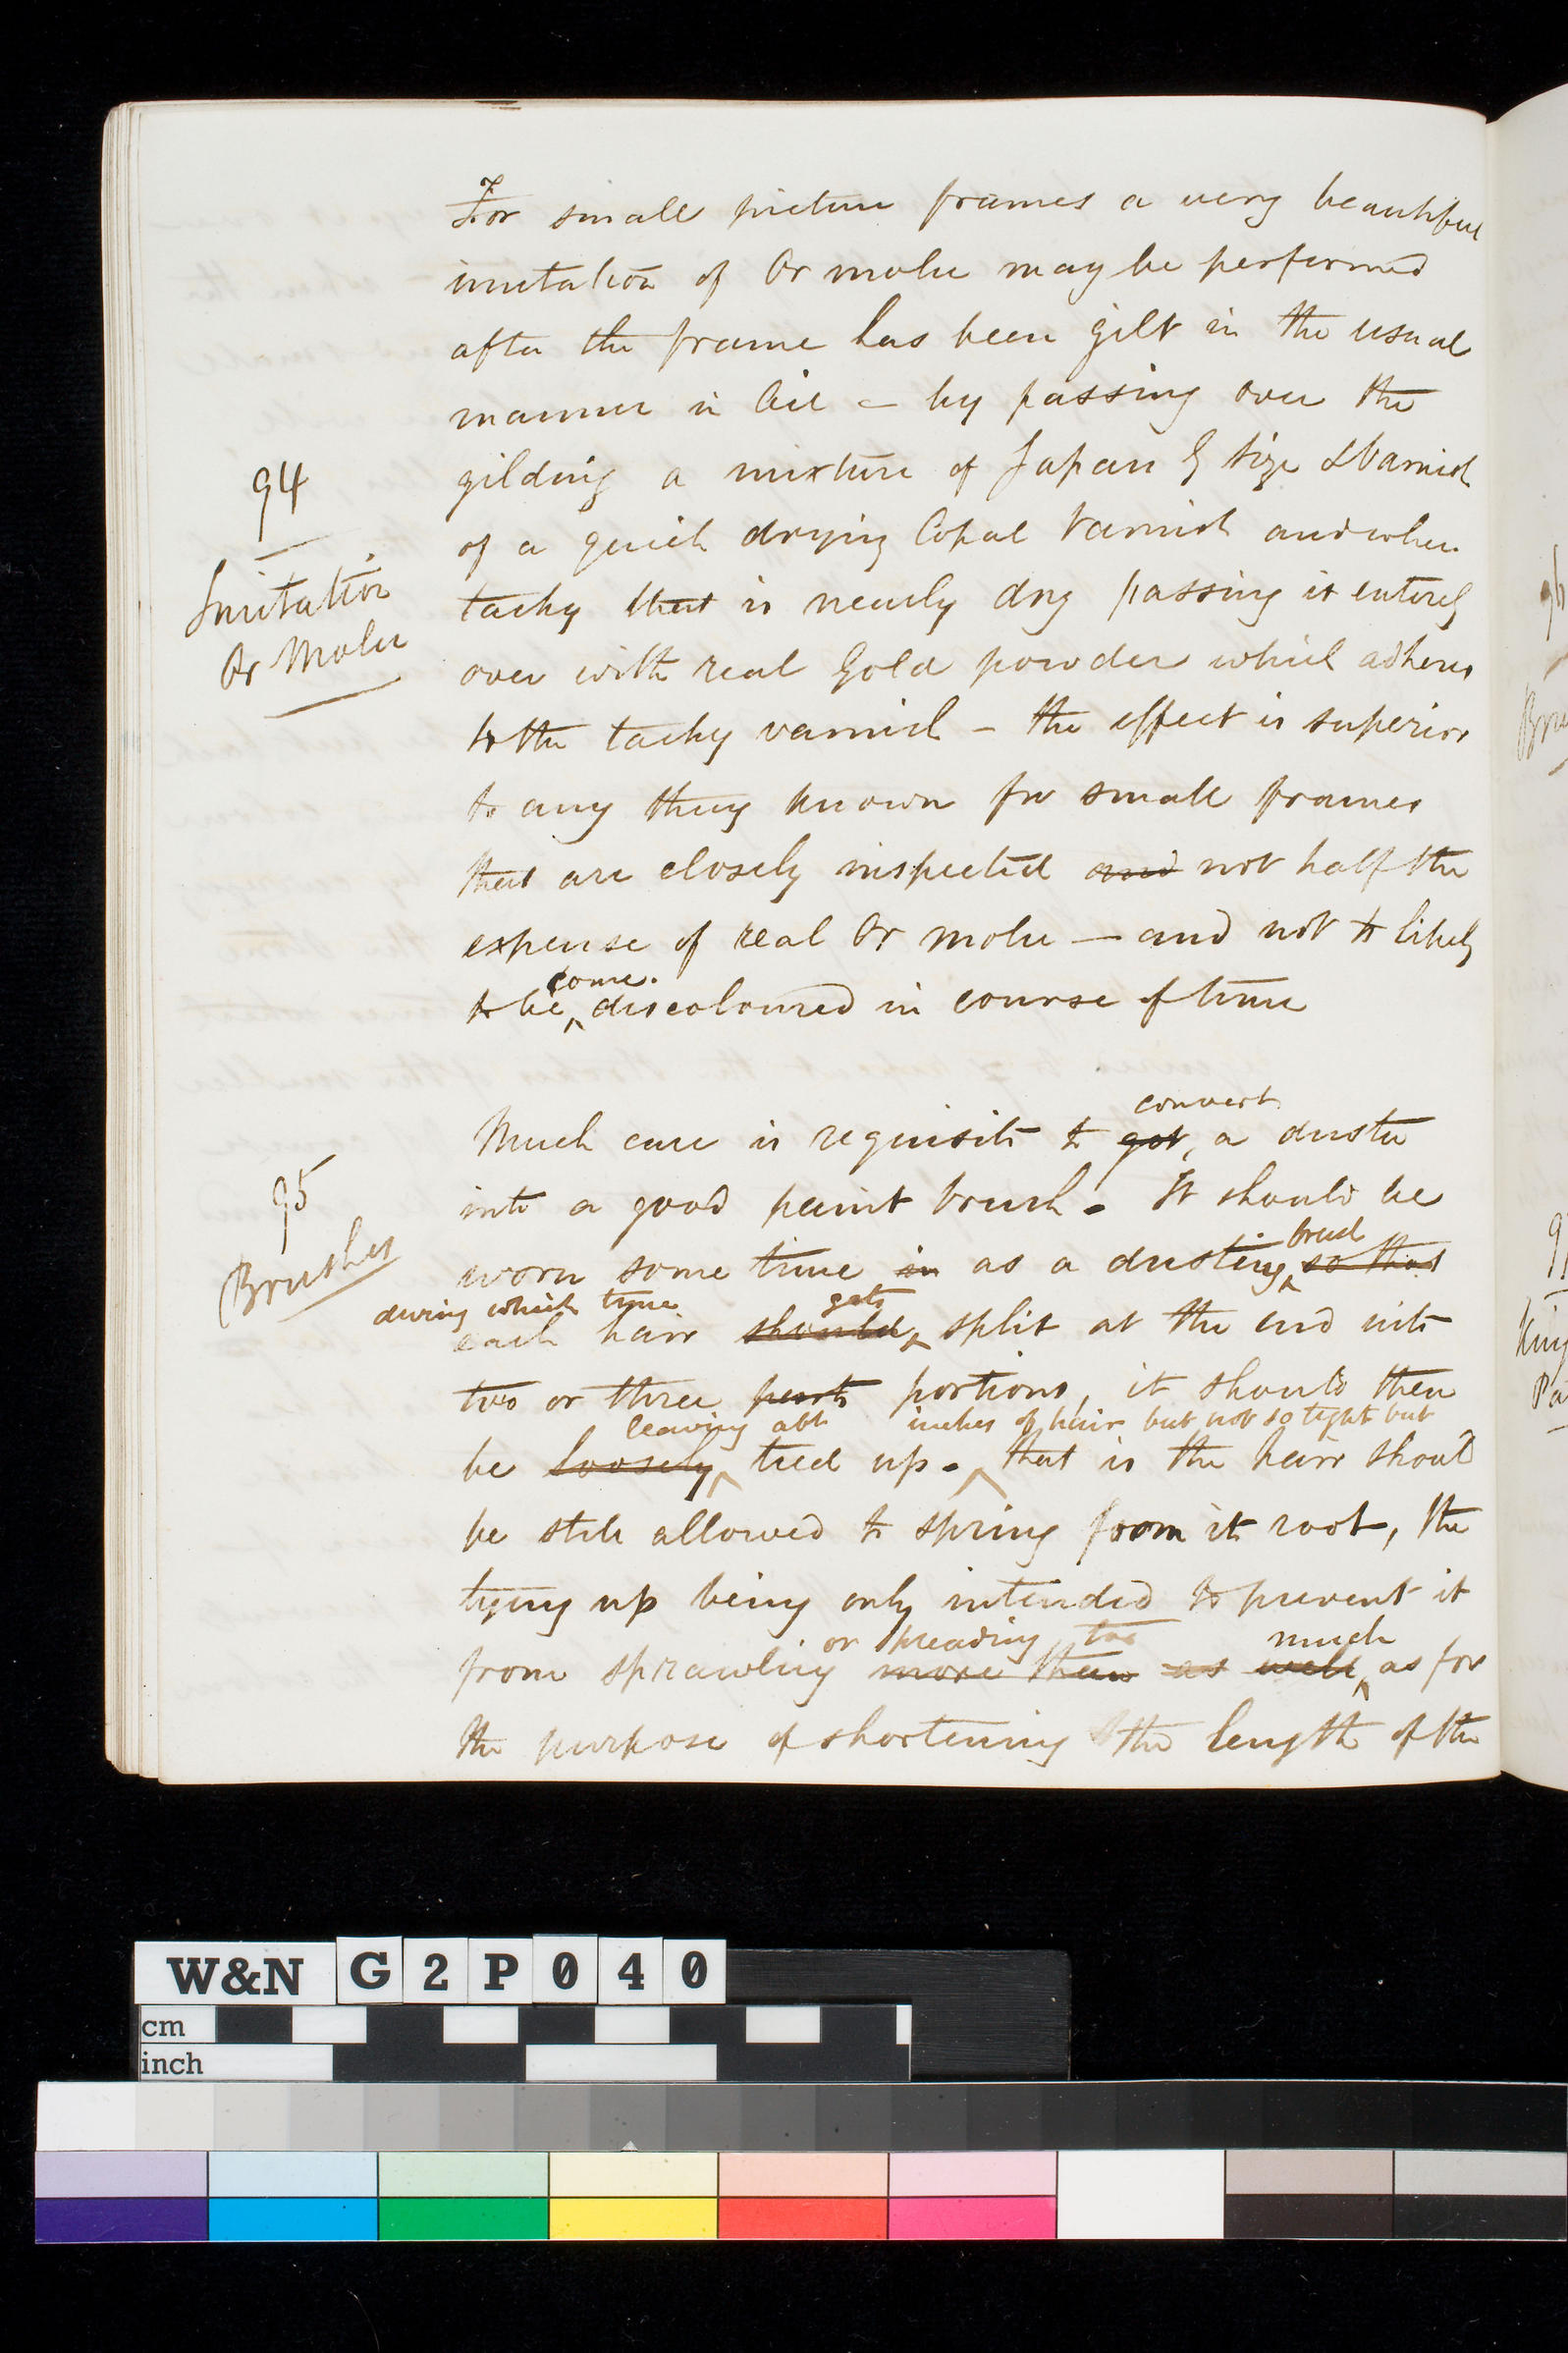 For small picture frames a very beautiful
imitation of Or molu may be performed
after the frame has been gilt in the usual
manner in Oil – by passing over the
gilding a mixture of Japan G size & Varnish
of a quick drying Copal Varnish and when
94
tacky that is nearly dry passing it entirely
Imitation
Or Molu
over with real Gold powder which adheres
to the tacky varnish – the effect is superior
to any thing known for small frames
that are closely inspected and not half the
expense of real Or molu – and not so likely
come.
to be discoloured in course of time
convert
Much care is requisite to get, a duster
95
Brushes
into a good paint brush. It should be
brush
worn some time in as a dusting so that
during which time gets
each hair should split at the end into
two or three parts portions, it should then
leaving abt inches of hair but not so tight but
be loosely tied up. that is the hair should
be still allowed to spring from it root, the
tying up being only intended to prevent it
or spreading too much
from sprawling more than as well as for
the purpose of shortening the length of the
96
Bru
9
King
Pa
W&N G2P040
cm
inch